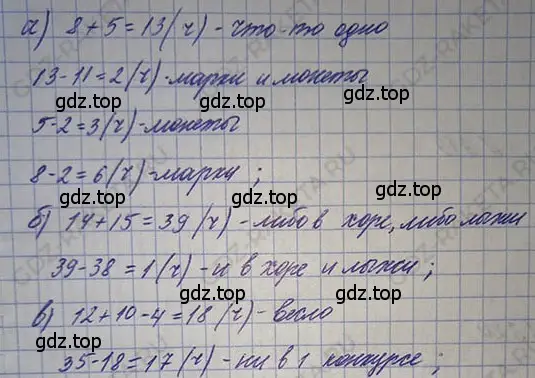 а) 8+5=13(ч) - что-то одно
13-11=2(ч) - марки и монеты
gdz.top gdz.top
5-2=3(ч) - монеты
gdz.top
8-2=6(ч) - марки;
gdz.top gdz.top
б) 14+15=39(ч) - либо в хоре, либо лыжи
39-38=1(ч) - и в хоре и лыжи;
gdz.top gdz.top
в) 12+10-4=18(ч) - всего
35-18=17(ч) - ни в 1 конкурсе;
gdz.top
GDZ-RAKETA.RU